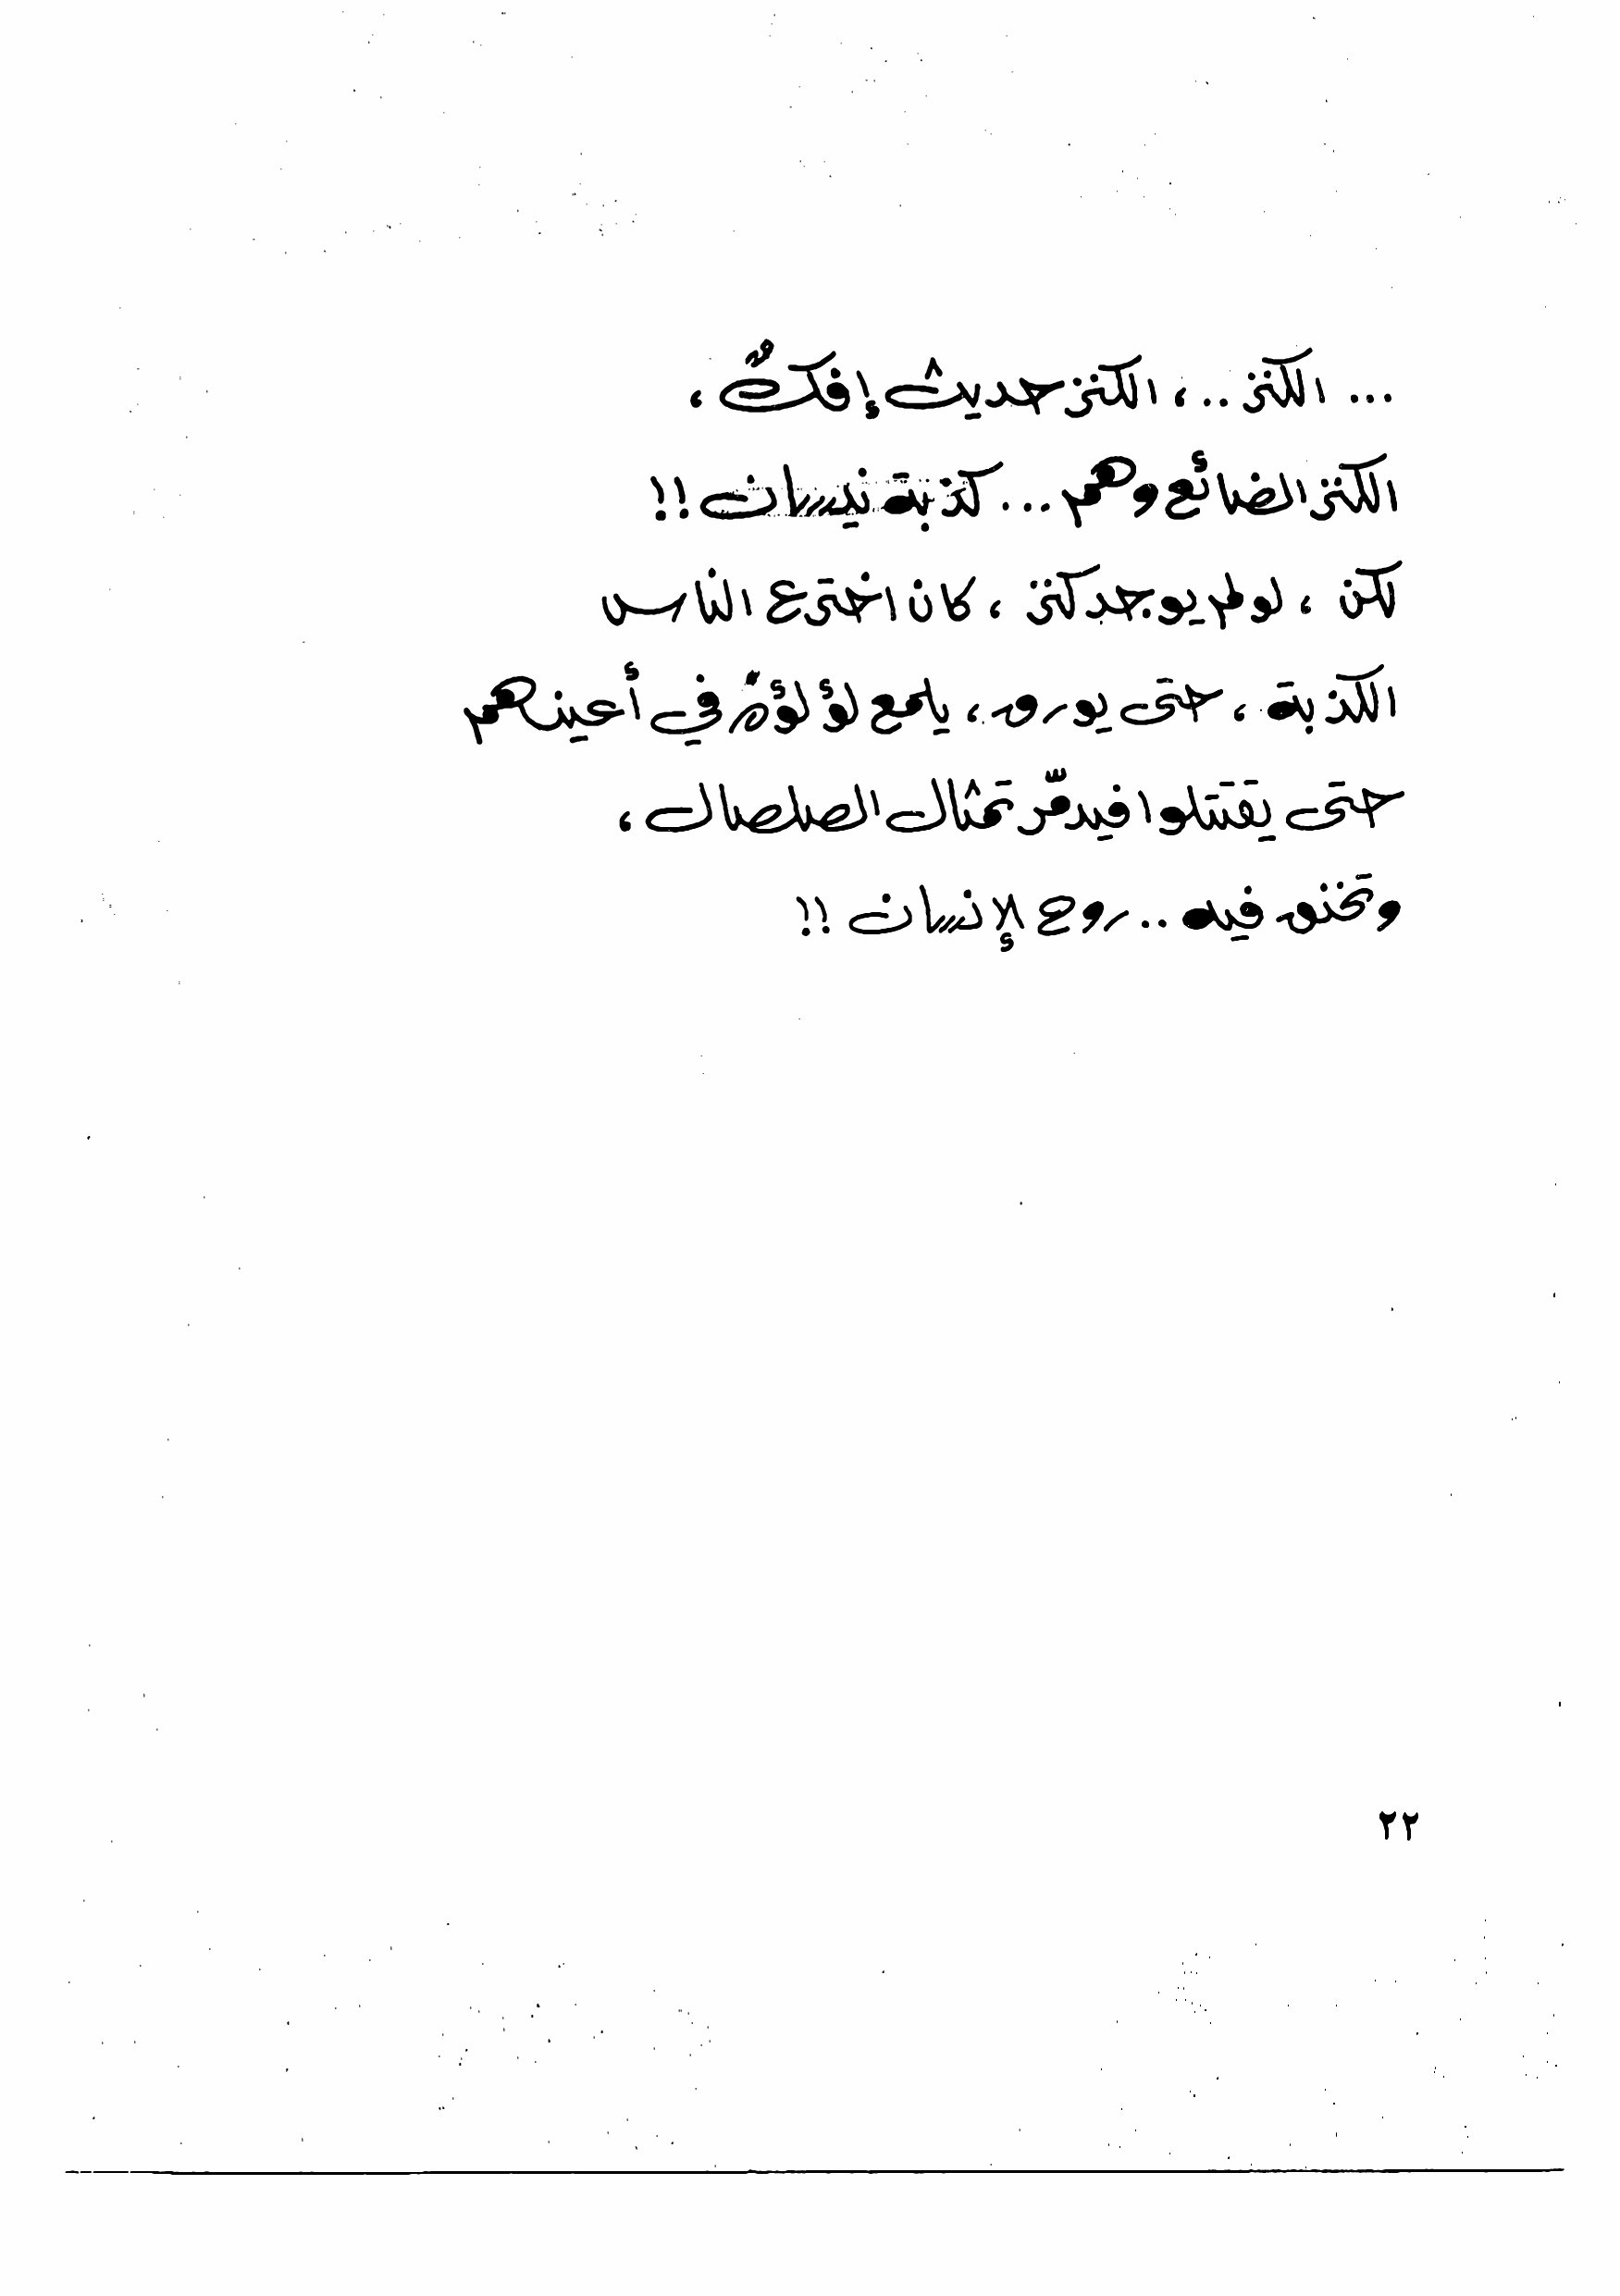 ... الكنز ..، الكنز حديث إفكٌ،
الكنز الضائع وهم ... كذبة نيسان !!
لكن ، لو لم يوجد كنز ، كان اخترع الناس
الكذبة ، حتى يورق، يلمع لؤلؤهّ في أعينهم
حتى يقتتلوا فيدمّر تمثال الصلصال ،
وتختنق فيه .. روح الإنسان !!
٢٢